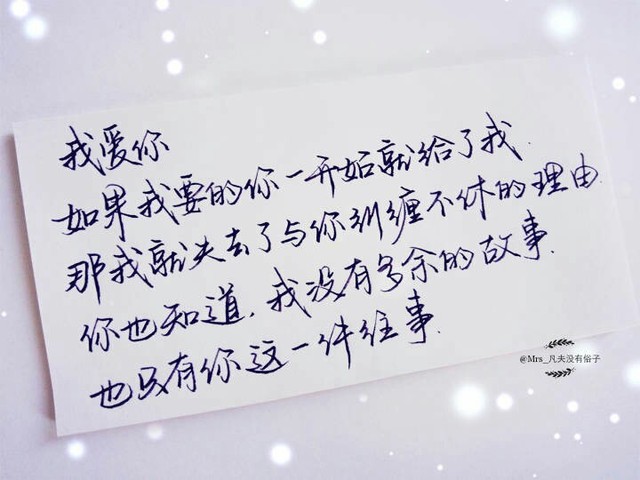 我爱你
如果我要的你一开始就给了我.
那我就失去了与你纠缠不休的理由.
你也知道,我没有多余的故事.
也只有你这一件往事.
@Mrs_凡夫没有俗子